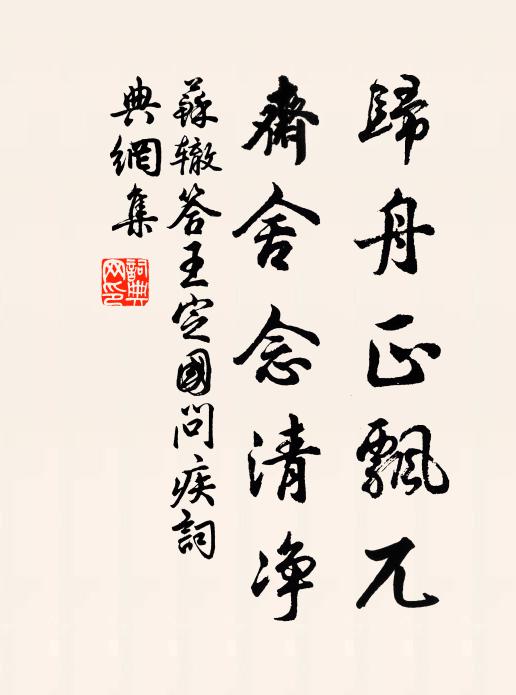 歸舟正飄兀
齋舍念清净
蘇辙答王定國問疾詞
典網集
詞典网印